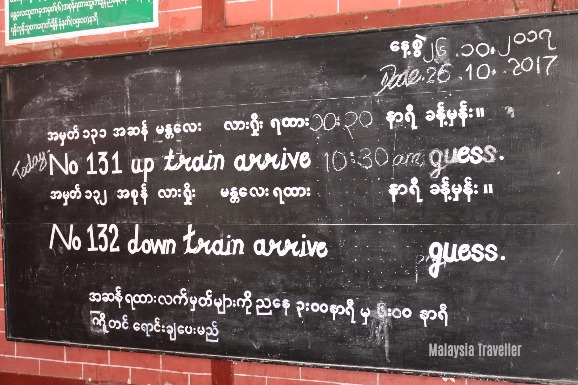 နေ့စွဲ ၂၆.၁၀.၂၀၁၇
Date. 26.10.2017
အမှတ် ၁၃၁ အဆန် မန္တလေး လားရှိုး ရထား ၁၀:၃၀ နာရီ ခန့်မှန်း။
Today No 131 up train arrive 10:30 am guess.
အမှတ် ၁၃၂ အစုန် လားရှိုး မန္တလေး ရထား နာရီ ခန့်မှန်း။
No 132 down train arrive guess.
အဆန် ရထားလက်မှတ်များကို ညနေ ၃:၀၀နာရီ မှ ၆:၀၀ နာရီ
ကြိုတင် ရောင်းချပေးမည်
Malaysia Traveller